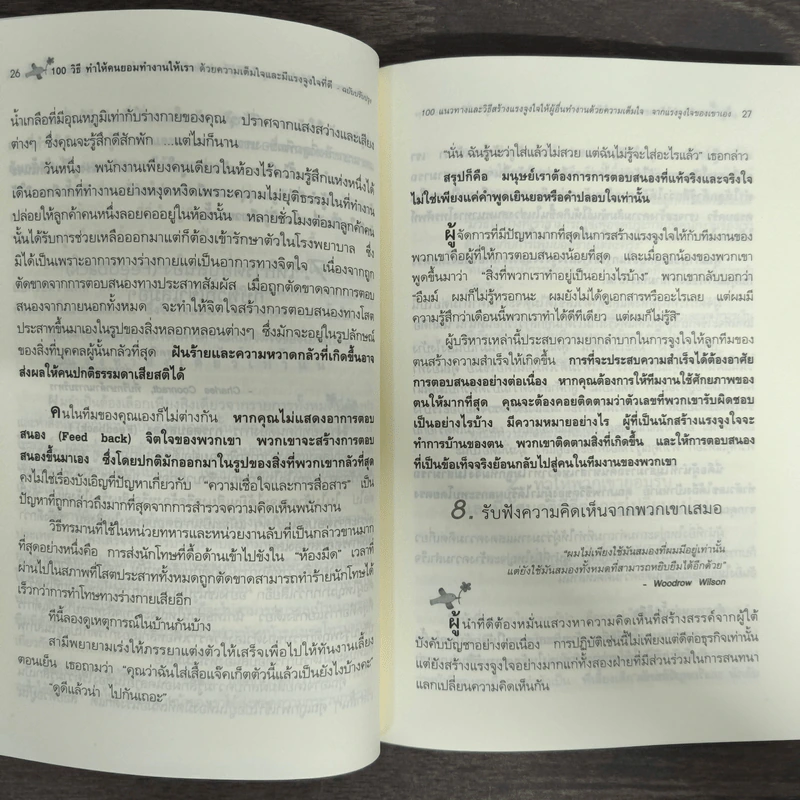 26
100 วิธี ทำให้คนยอมทำงานให้เรา ด้วยความเต็มใจและมีแรงจูงใจที่ดี - ฉบับปรับปรุง
น้ำเกลือที่มีอุณหภูมิเท่ากับร่างกายของคุณ ปราศจากแสงสว่างและเสียง
ต่างๆ ซึ่งคุณจะรู้สึกดีสักพัก ...แต่ไม่กี่นาน
วันหนึ่ง พนักงานเพียงคนเดียวในห้องไร้ความรู้สึกแห่งหนึ่งได้
เดินออกจากที่ทำงานอย่างหงุดหงิดเพราะความไม่ยุติธรรมในที่ทำงาน
ปล่อยให้ลูกค้าคนหนึ่งลอยคออยู่ในห้องนั้น หลายชั่วโมงต่อมาลูกค้าคน
นั้นได้รับการช่วยเหลือออกมาแต่ก็ต้องเข้ารักษาตัวในโรงพยาบาล ซึ่ง
มิได้เป็นเพราะอาการทางร่างกายแต่เป็นอาการทางจิตใจ เนื่องจากถูก
ตัดขาดจากการตอบสนองทางประสาทสัมผัส เมื่อถูกตัดขาดจากการตอบ
สนองจากภายนอกทั้งหมด จะทำให้จิตใจสร้างการตอบสนองทางโสต
ประสาทขึ้นมาเองในรูปของสิ่งหลอกหลอนต่างๆ ซึ่งมักจะอยู่ในรูปลักษณ์
ของสิ่งที่บุคคลผู้นั้นกลัวที่สุด ฝันร้ายและความหวาดกลัวที่เกิดขึ้นอาจ
ส่งผลให้คนปกติธรรมดาเสียสติได้
คนในทีมของคุณเองก็ไม่ต่างกัน หากคุณไม่แสดงอาการตอบ
สนอง (Feed back) จิตใจของพวกเขา พวกเขาจะสร้างการตอบ
สนองขึ้นมาเอง ซึ่งโดยปกติมักออกมาในรูปของสิ่งที่พวกเขากลัวที่สุด
คงไม่ใช่เรื่องบังเอิญที่ปัญหาเกี่ยวกับ “ความเชื่อใจและการสื่อสาร” เป็น
ปัญหาที่ถูกกล่าวถึงมากที่สุดจากการสำรวจความคิดเห็นพนักงาน
วิธีทรมานที่ใช้ในหน่วยทหารและหน่วยงานลับที่เป็นกล่าวขานมาก
ที่สุดอย่างหนึ่งคือ การส่งนักโทษที่ดื้อด้านเข้าไปขังใน “ห้องมืด” เวลาที่
ผ่านไปในสภาพที่โสตประสาททั้งหมดถูกตัดขาดสามารถทำร้ายนักโทษได้
เร็วกว่าการทำโทษทางร่างกายเสียอีก
ทีนี้ลองดูเหตุการณ์ในบ้านกันบ้าง
สามีพยายามเร่งให้ภรรยาแต่งตัวให้เสร็จเพื่อไปให้ทันงานเลี้ยง
ตอนเย็น เธอถามว่า “คุณว่าฉันใส่เสื้อแจ๊คเก็ตตัวนี้แล้วเป็นยังไงบ้างคะ”
“ดูดีแล้วน่า ไปกันเถอะ”
100 แนวทางและวิธีสร้างแรงจูงใจให้ผู้อื่นทำงานด้วยความเต็มใจ จากแรงจูงใจของเขาเอง 27
“นั่น ฉันรู้นะว่าใส่แล้วไม่สวย แต่ฉันไม่รู้จะใส่อะไรแล้ว” เธอกล่าว
สรุปก็คือ มนุษย์เราต้องการการตอบสนองที่แท้จริงและจริงใจ
ไม่ใช่เพียงแค่คำพูดเยินยอหรือคำปลอบใจเท่านั้น
ผู้จัดการที่มีปัญหามากที่สุดในการสร้างแรงจูงใจให้กับทีมงานของ
พวกเขาคือผู้ที่ให้การตอบสนองน้อยที่สุด และเมื่อลูกน้องของพวกเขา
พูดขึ้นมาว่า “สิ่งที่พวกเราทำอยู่เป็นอย่างไรบ้าง” พวกเขากลับบอกว่า
“อืมม์ ผมก็ไม่รู้หรอกนะ ผมยังไม่ได้ดูเอกสารหรืออะไรเลย แต่ผมมี
ความรู้สึกว่าเดือนนี้พวกเราทำได้ดีทีเดียว แต่ผมก็ไม่รู้สิ”
ผู้บริหารเหล่านี้ประสบความยากลำบากในการจูงใจให้ลูกทีมของ
ตนสร้างความสำเร็จให้เกิดขึ้น การที่จะประสบความสำเร็จได้ต้องอาศัย
การตอบสนองอย่างต่อเนื่อง หากคุณต้องการให้ทีมงานใช้ศักยภาพของ
ตนให้มากที่สุด คุณจะต้องคอยติดตามว่าตัวเลขที่พวกเขารับผิดชอบ
เป็นอย่างไรบ้าง มีความหมายอย่างไร ผู้ที่เป็นนักสร้างแรงจูงใจจะ
ทำการบ้านของตน พวกเขาติดตามสิ่งที่เกิดขึ้น และให้การตอบสนอง
ที่เป็นข้อเท็จจริงย้อนกลับไปสู่คนในทีมงานของพวกเขา
8. รับฟังความคิดเห็นจากพวกเขาเสมอ
“ผมไม่เพียงใช้มันสมองที่ผมมีอยู่เท่านั้น
แต่ยังใช้มันสมองทั้งหมดที่สามารถหยิบยืมได้อีกด้วย”
- Woodrow Wilson
ผู้นำที่ดีต้องหมั่นแสวงหาความคิดเห็นที่สร้างสรรค์จากผู้ใต้
บังคับบัญชาอย่างต่อเนื่อง การปฏิบัติเช่นนี้ไม่เพียงแต่ดีต่อธุรกิจเท่านั้น
แต่ยังสร้างแรงจูงใจอย่างมากแก่ทั้งสองฝ่ายที่มีส่วนร่วมในการสนทนา
แลกเปลี่ยนความคิดเห็นกัน